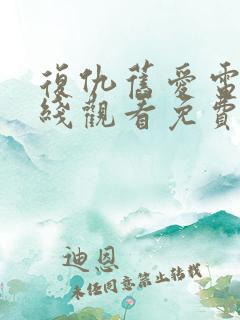 復仇舊愛電
綫觀看免費
迪恩
未經同意禁止轉載